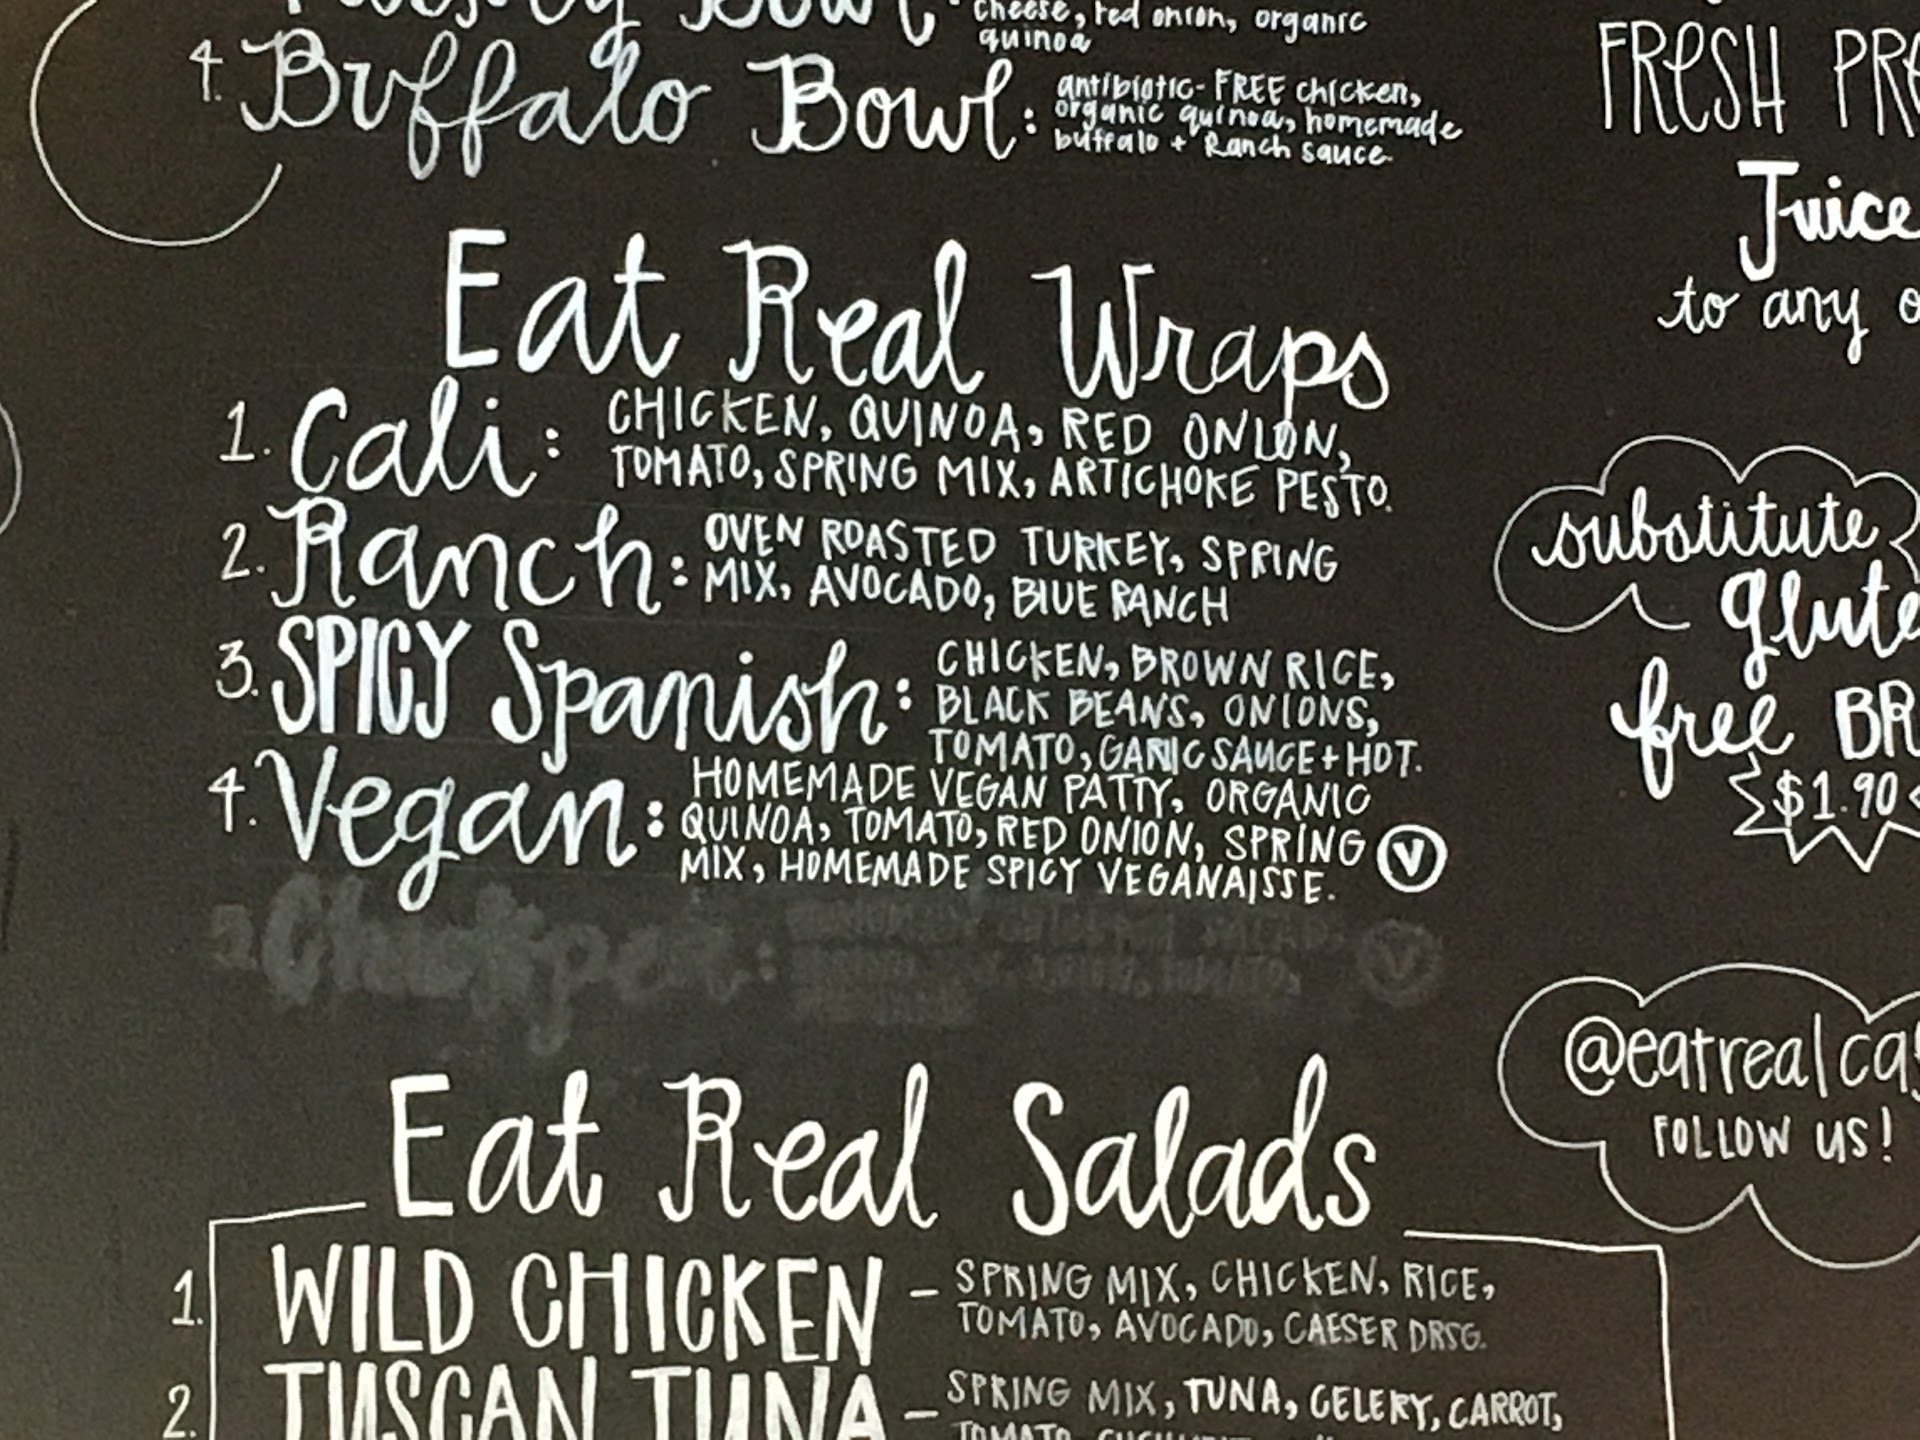 Bowl:
cheese, red onion, organic
quinoa
4. Buffalo Bowl: antibiotic-FREE chicken,
organic quinoa, homemade
buffalo + Ranch sauce
Eat Real Wraps
1. Cali: CHICKEN, QUINOA, RED ONION,
TOMATO, SPRING MIX, ARTICHOKE PESTO.
2. Ranch: OVEN ROASTED TURKEY, SPRING
MIX, AVOCADO, BLUE RANCH
3. SPICY Spanish: CHICKEN, BROWN RICE,
BLACK BEANS, ONIONS,
TOMATO, GARLIC SAUCE + HOT.
4. Vegan: HOMEMADE VEGAN PATTY, ORGANIC
QUINOA, TOMATO, RED ONION, SPRING
MIX, HOMEMADE SPICY VEGANAISSE.
V
Eat Real Salads
1. WILD CHICKEN – SPRING MIX, CHICKEN, RICE,
TOMATO, AVOCADO, CAESER DRSG.
2. TUSCAN TUNA – SPRING MIX, TUNA, CELERY, CARROT,
TOMATO,
FRESH PRE
Juice
to any o
substitute
glute
free BR
$1.90
@eatrealca
FOLLOW us!